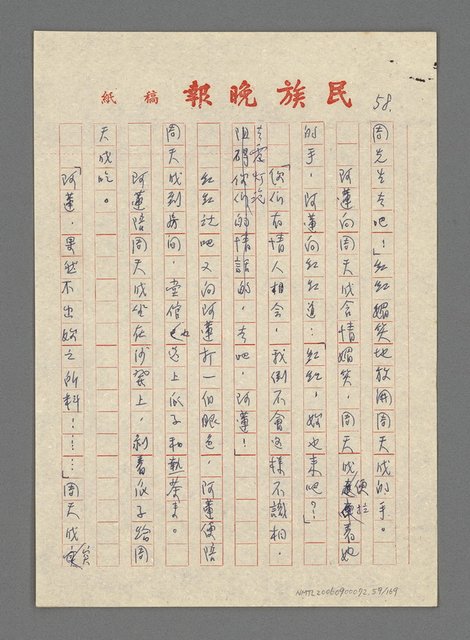 民族晚報 稿紙
58.
周先生去吧！」紅紅媚笑地放開周天成的手。
阿蓮向周天成含情媚笑，周天成便拉着她
的手，阿蓮向紅紅道：「紅紅，妳也來吧？」
「你們有情人相會，我倒不會這樣不識相，
去當電燈泡
阻碍你們的情話的，去吧，阿蓮！」
紅紅說吧又向阿蓮打一個眼色，阿蓮便陪
周天成到房間，堂倌也送上瓜子和熱茶來。
阿蓮陪周天成坐在沙發上，剥着瓜子給周
天成吃。
「阿蓮，果然不出妳之所料！……」周天成
NMTL20060900072, 59/169